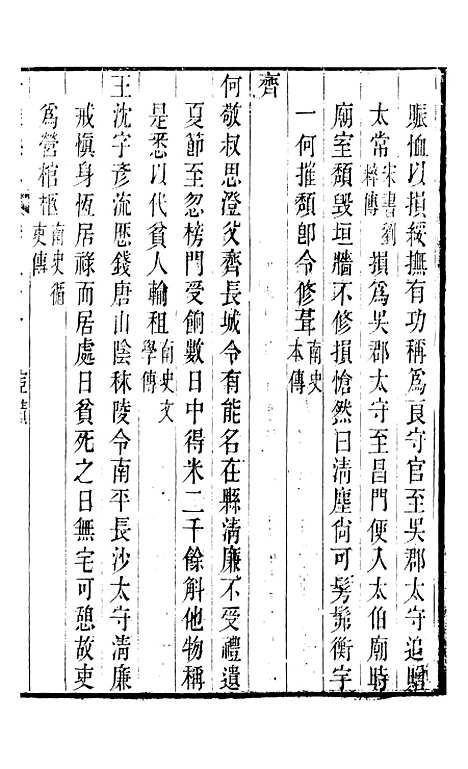 賑恤以損綏撫有功稱爲良守官至吳郡太守追贈
太常宋書劉粹傳損爲吳郡太守至昌門便入太伯廟時
廟室頹毀垣牆不修損愴然曰淸塵尙可髣髴衡宇
一何摧頹卽令修葺南史本傳
齊
何敬叔思澄父齊長城令有能名在縣淸廉不受禮遺
夏節至忽榜門受餉數日中得米二千餘斛他物稱
是悉以代貧人輸租南史文學傳
王沈字彥流歷錢唐山陰秣陵令南平長沙太守淸廉
戒愼身恆居祿而居處日貧死之日無宅可憩故吏
爲營棺柩南史循吏傳